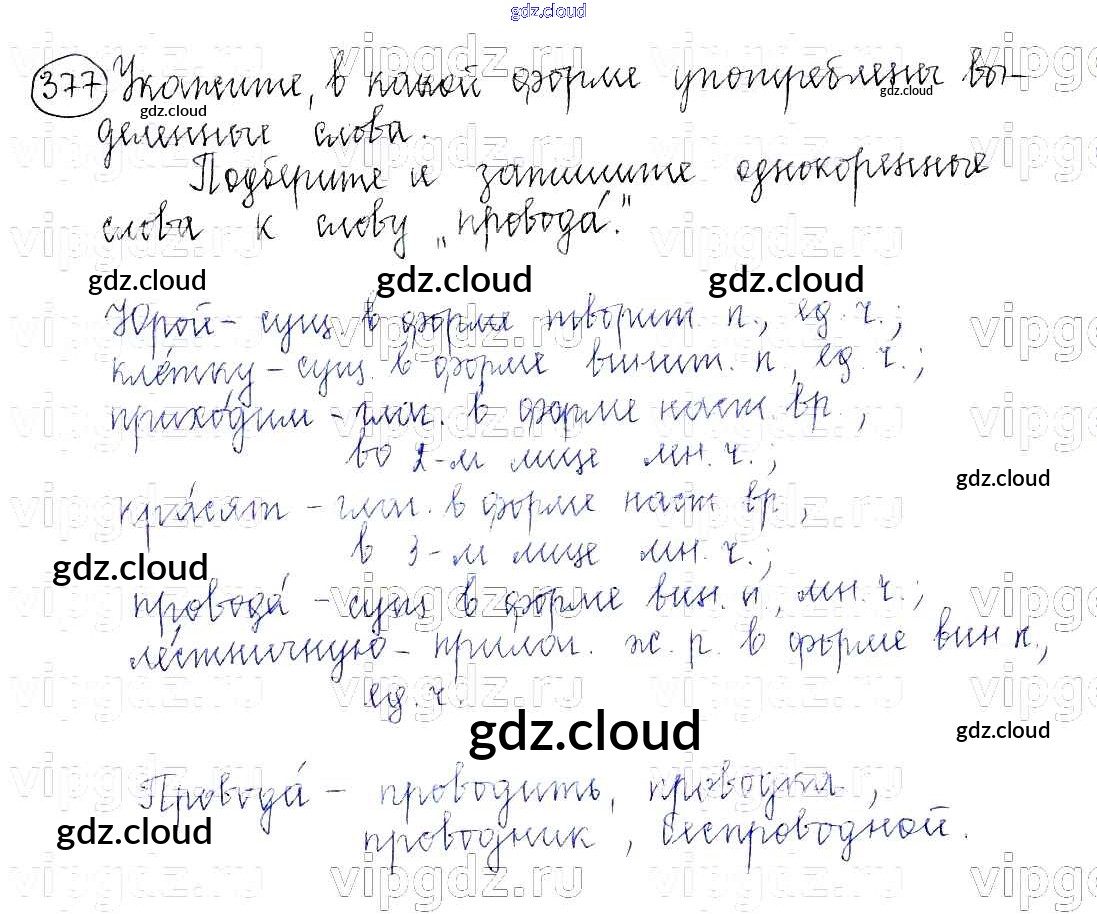 gdz.cloud
377 Укажите, в какой форме употреблены вы-
gdz.cloud gdz.cloud
деленные слова.
Подберите и запишите однокоренные
слова к слову „провода́".
gdz.cloud gdz.cloud gdz.cloud
Юрой – сущ. в форме творит. п., ед. ч.;
кле́тку – сущ. в форме винит. п, ед. ч.;
прихо́дим – глаг. в форме наст. вр.,
во 2-м лице мн. ч.;
gdz.cloud
кра́сят – глаг. в форме наст вр,
в 3-м лице мн. ч.;
gdz.cloud
провода́ – сущ в форме вин. п, мн. ч.;
ле́стничную – прилаг. ж. р. в форме вин п.,
ед. ч.
gdz.cloud
gdz.cloud
Провода́ – проводить, проводка,
gdz.cloud
проводник, беспроводной.
vipgdz.ru